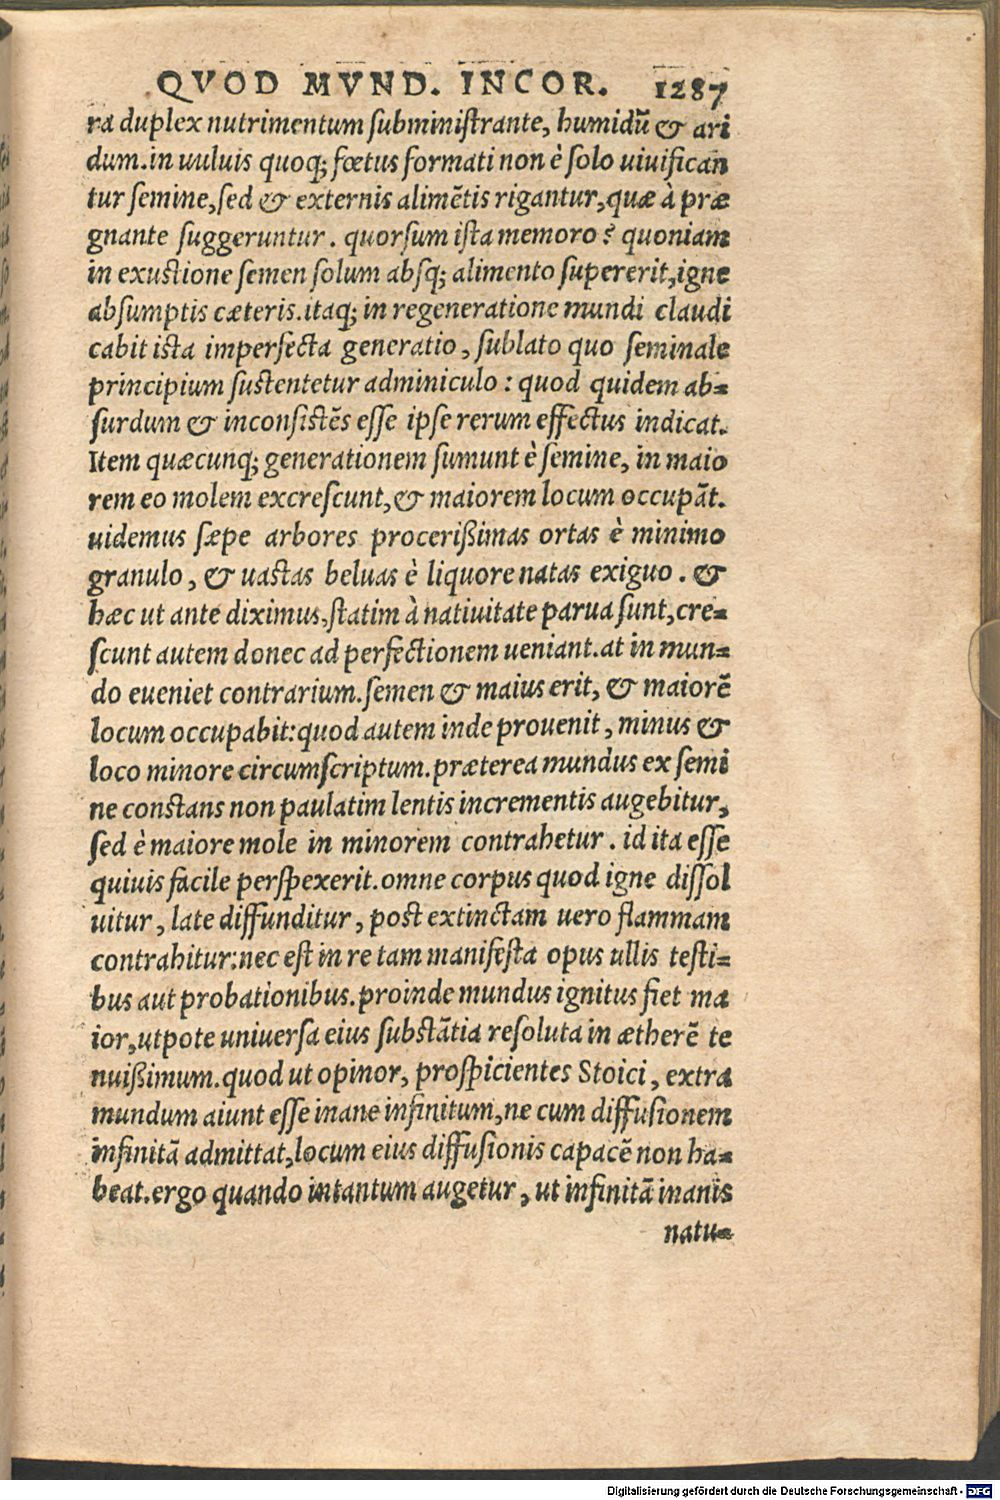 QVOD MVND. INCOR. 1287
ra duplex nutrimentum subministrante, humidũ & ari
dum.in uuluis quoq; fœtus formati non è solo uiuifican
tur semine,sed & externis alimẽtis rigantur,quæ à præ
gnante suggeruntur. quorsum ista memoro? quoniam
in exustione semen solum absq; alimento supererit,igne
absumptis cæteris.itaq; in regeneratione mundi claudi
cabit ista imperfecta generatio, sublato quo seminale
principium sustentetur adminiculo: quod quidem ab=
surdum & inconsistẽs esse ipse rerum effectus indicat.
Item quæcunq; generationem sumunt è semine, in maio
rem eo molem excrescunt,& maiorem locum occupãt.
uidemus sæpe arbores procerißimas ortas è minimo
granulo, & uastas beluas è liquore natas exiguo. &
hæc ut ante diximus,statim à natiuitate parua sunt,cre=
scunt autem donec ad perfectionem ueniant.at in mun=
do eueniet contrarium.semen & maius erit, & maiorẽ
locum occupabit:quod autem inde prouenit, minus &
loco minore circumscriptum.præterea mundus ex semi
ne constans non paulatim lentis incrementis augebitur,
sed è maiore mole in minorem contrahetur. id ita esse
quiuis facile perspexerit.omne corpus quod igne dissol
uitur, late diffunditur, post extinctam uero flammam
contrahitur:nec est in re tam manifesta opus ullis testi=
bus aut probationibus.proinde mundus ignitus fiet ma
ior,utpote uniuersa eius substãtia resoluta in ætherẽ te
nuißimum.quod ut opinor, prospicientes Stoici, extra
mundum aiunt esse inane infinitum,ne cum diffusionem
infinitã admittat,locum eius diffusionis capacẽ non ha=
beat.ergo quando intantum augetur, ut infinitã inanis
natu=
Digitalisierung gefördert durch die Deutsche Forschungsgemeinschaft - DFG